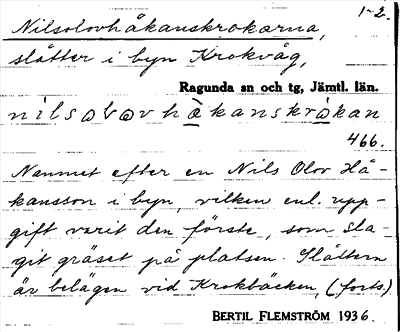 1-2.
Nilsolovhåkanskrokarna,
slåtter i byn Krokvåg,
Ragunda sn och tg, Jämtl. län.
nilsolovhåkanskròkan
466.
Namnet efter en Nils Olov Hå-
kansson i byn, vilken enl. upp-
gift varit den förste, som sla-
git gräset på platsen. Slåttern
är belägen vid Krokbäcken, (forts.)
BERTIL FLEMSTRÖM 1936.